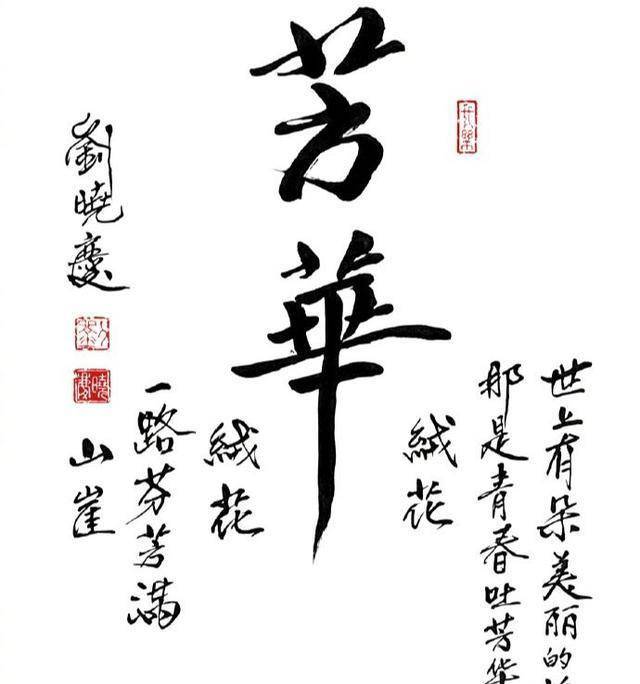 芳華
世上有朵美丽的
那是青春吐芳华
絨花
絨花
一路芬芳满
山崖
劉曉慶